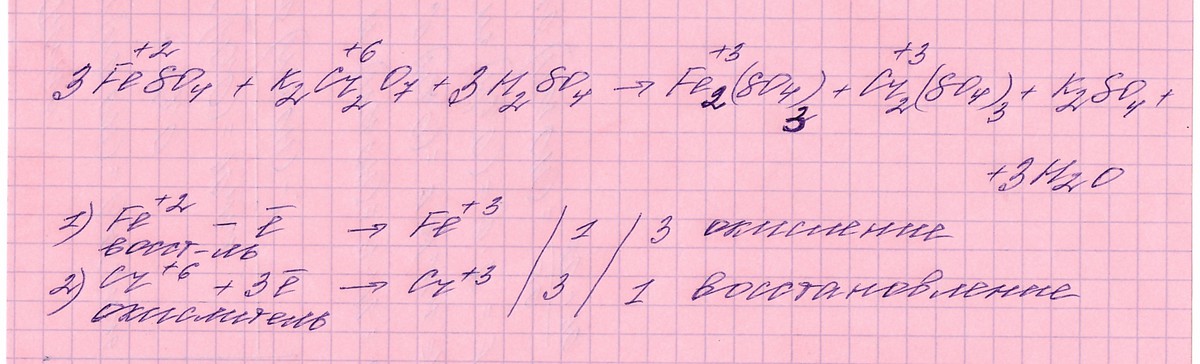 +2 +6 +3 +3
3 FeSO4 + K2Cr2O7 + 3 H2SO4 → Fe2(SO4)3 + Cr2(SO4)3 + K2SO4 +
+ 3 H2O
1) Fe+2 – ē → Fe+3 / 1 / 3 окисление
восст-ль
2) Cr+6 + 3ē → Cr+3 / 3 / 1 восстановление
окислитель